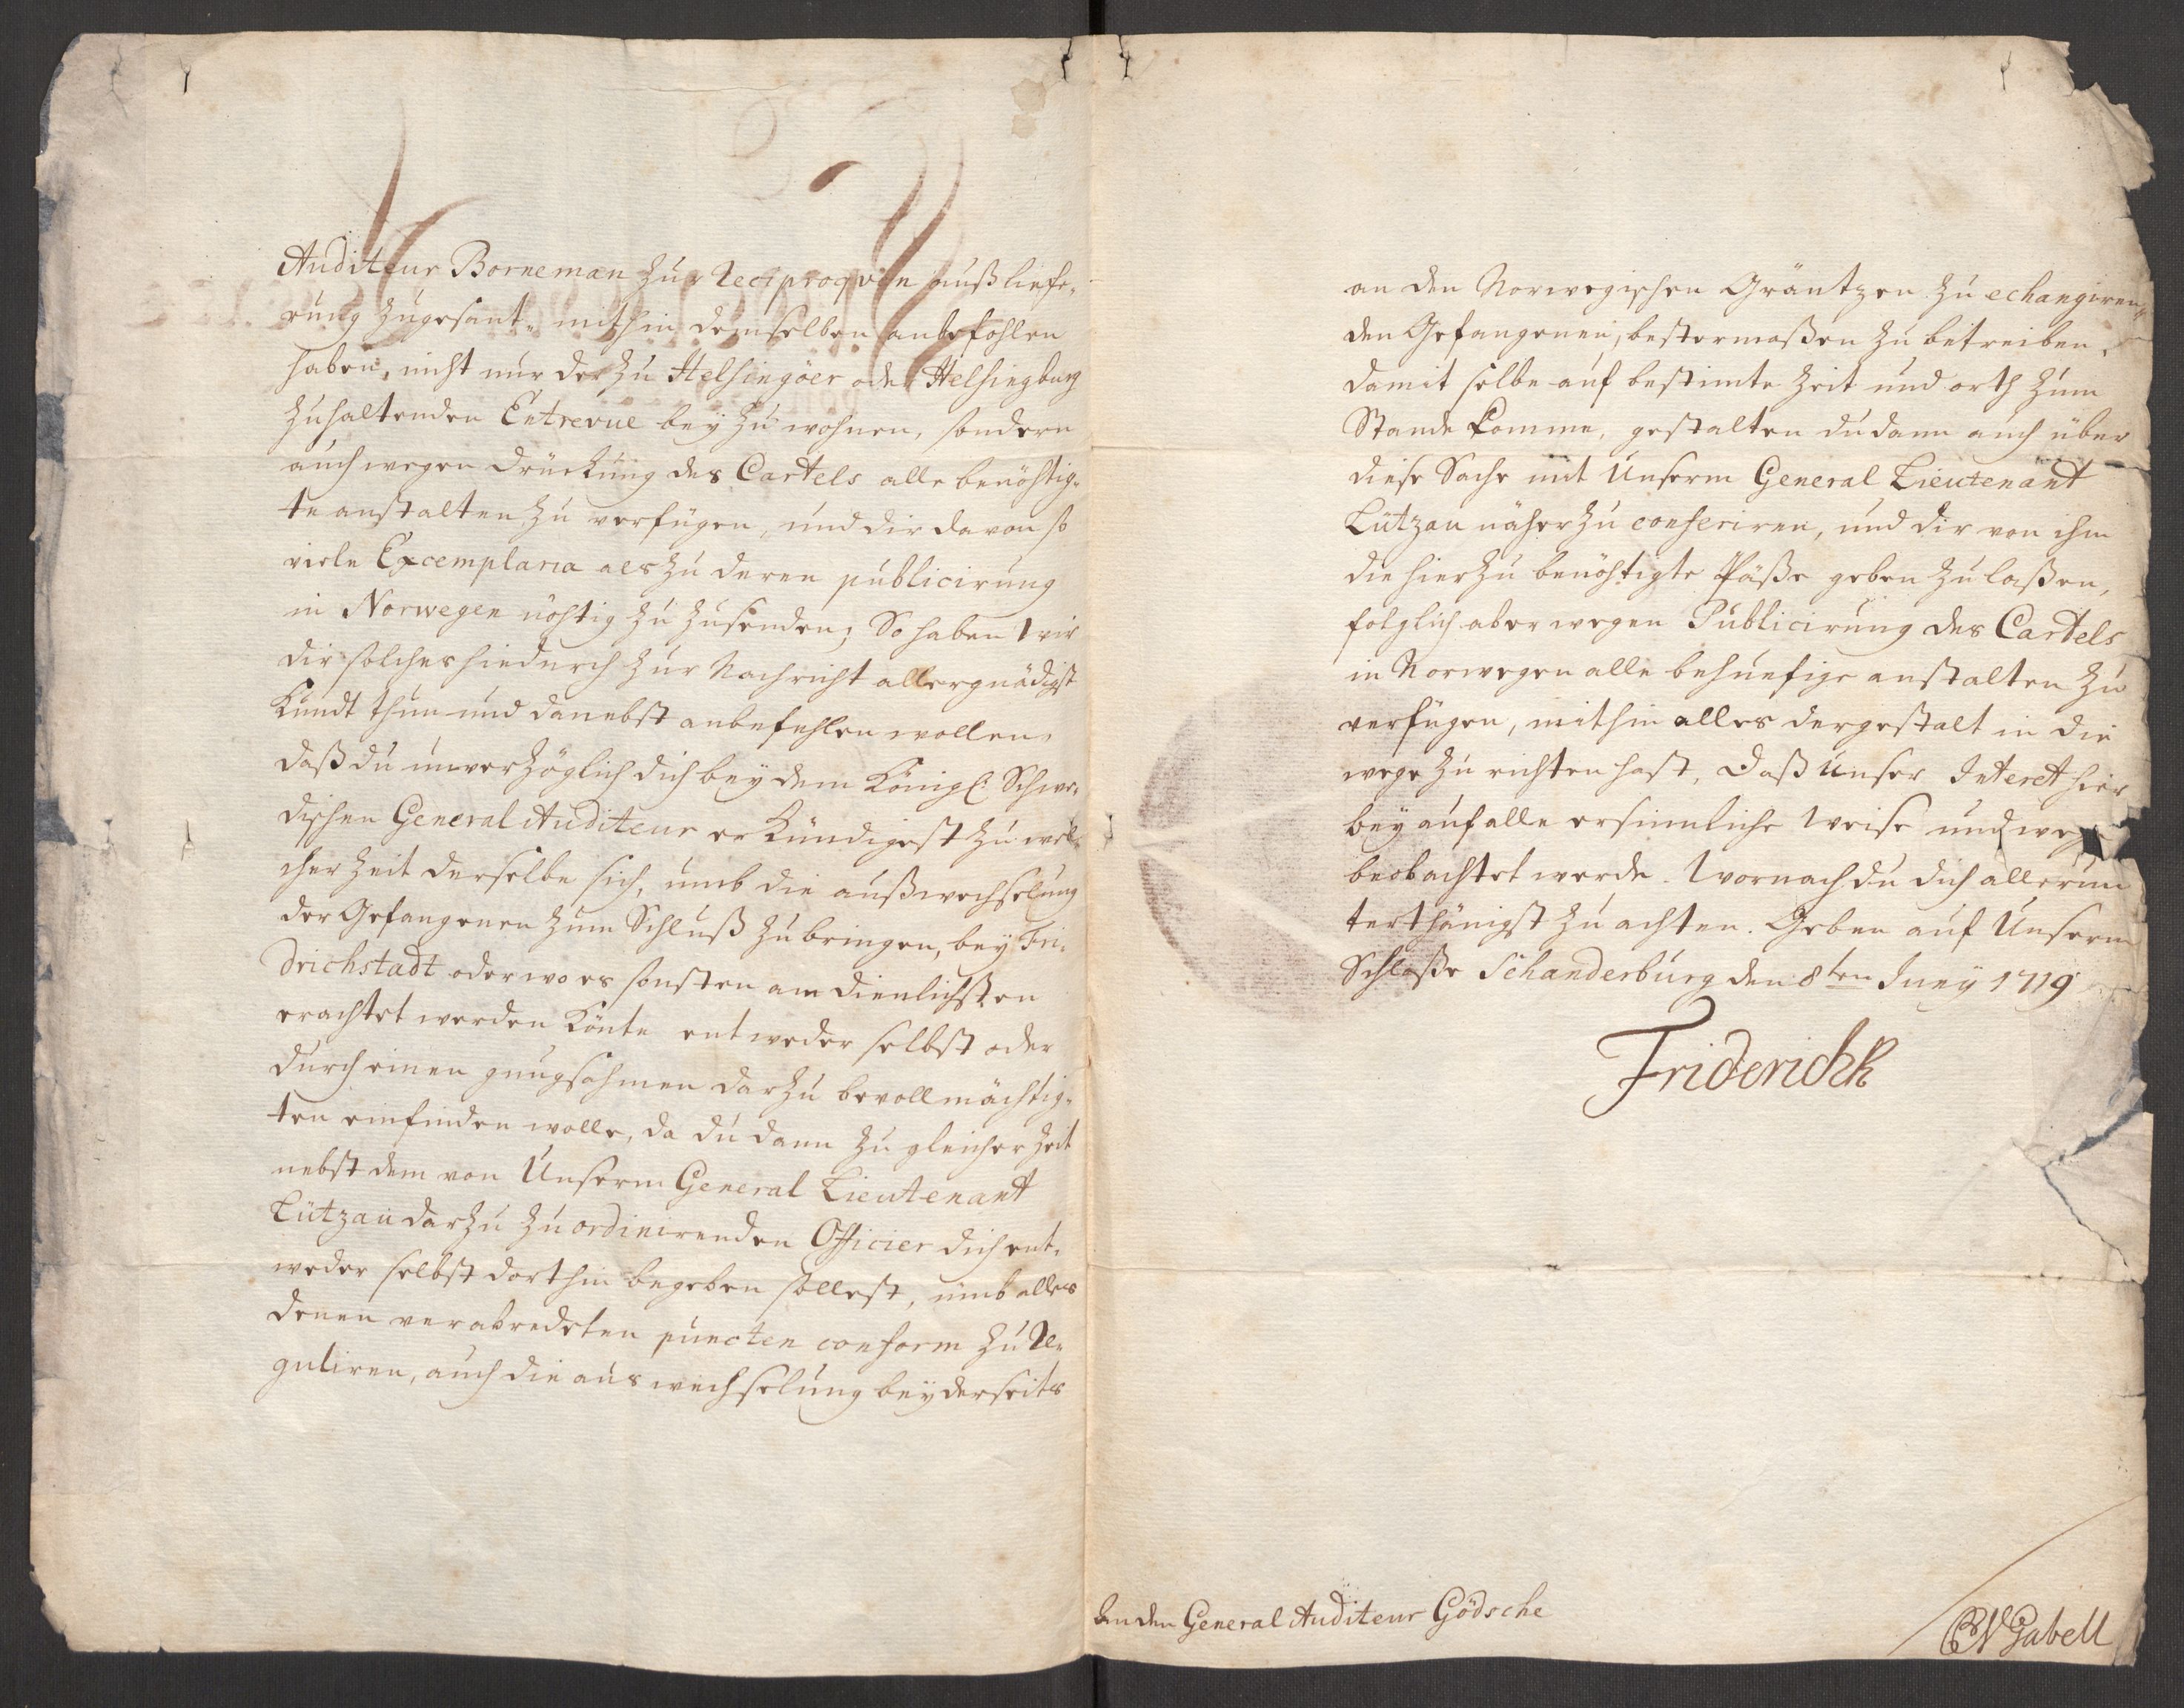 Auditeur Borneman zur Reciproqven außliefe-
rung zugesant, mithin demselben anbefohlen
haben, nicht nur der zu Helsingöer oder Helsingburg
zuhaltenden Entrevue bey zu wohnen, sondern
auch wegen Drückung des Cartels alle benöhtig-
te anstalten zu verfügen, und dir davon so
viele Excemplaria als zu deren publicirung
in Norwegen nöhtig zu zusenden; So haben Wir
dir solches hiedurch zur Nachricht allergnädigst
Kundt thun und danebst anbefehlen wollen,
daß du unverzöglich dich bey dem Königl. Schwe-
dischen General Auditeur erkündigest zu wel-
cher Zeit derselbe sich, umb die außwechselung
der Gefangenen zum Schluß zu bringen, bey Fri-
drichstadt oder wo es sonsten am dienlichsten
erachtet werden könte entweder selbst oder
durch einen gnugsahmen darzu bevollmächtig-
ten einfinden wolle, da du dann zu gleicher Zeit
nebst dem von Unserm General Lieutenant
Lützau darzu zu ordinirenden Officier dich ent-
weder selbst dorthin begeben sollest, umb alles
denen verabredeten puncten conform zu Re-
guliren, auch die auswechselung beyderseits
an den Norwegischen Gräntzen zu echangiren-
den Gefangenen, bestermaßen zu betreiben,
damit selbe auf bestimte Zeit und orth zum
Stande komme, gestalten du dann auch über
diese Sache mit Unserm General Lieutenant
Lützau näher zu conferiren, und dir von ihm
die hierzu benöhtigte Päße geben zu laßen,
folglich aber wegen Publicirung des Cartels
in Norwegen alle behuefige anstalten zu
verfügen, mithin alles dergestalt in die
wege zu richten hast, daß Unser Interet hier
bey auf alle ersinnliche Weise und weg
beobachtet werde. Wornach du dich allerun
terthänigst zu achten. Geben auf Unserm
Schloße Schanderburg den 8ten Juny 1719
Friderich R
An den General Auditeur Gödsche
CN Gabell